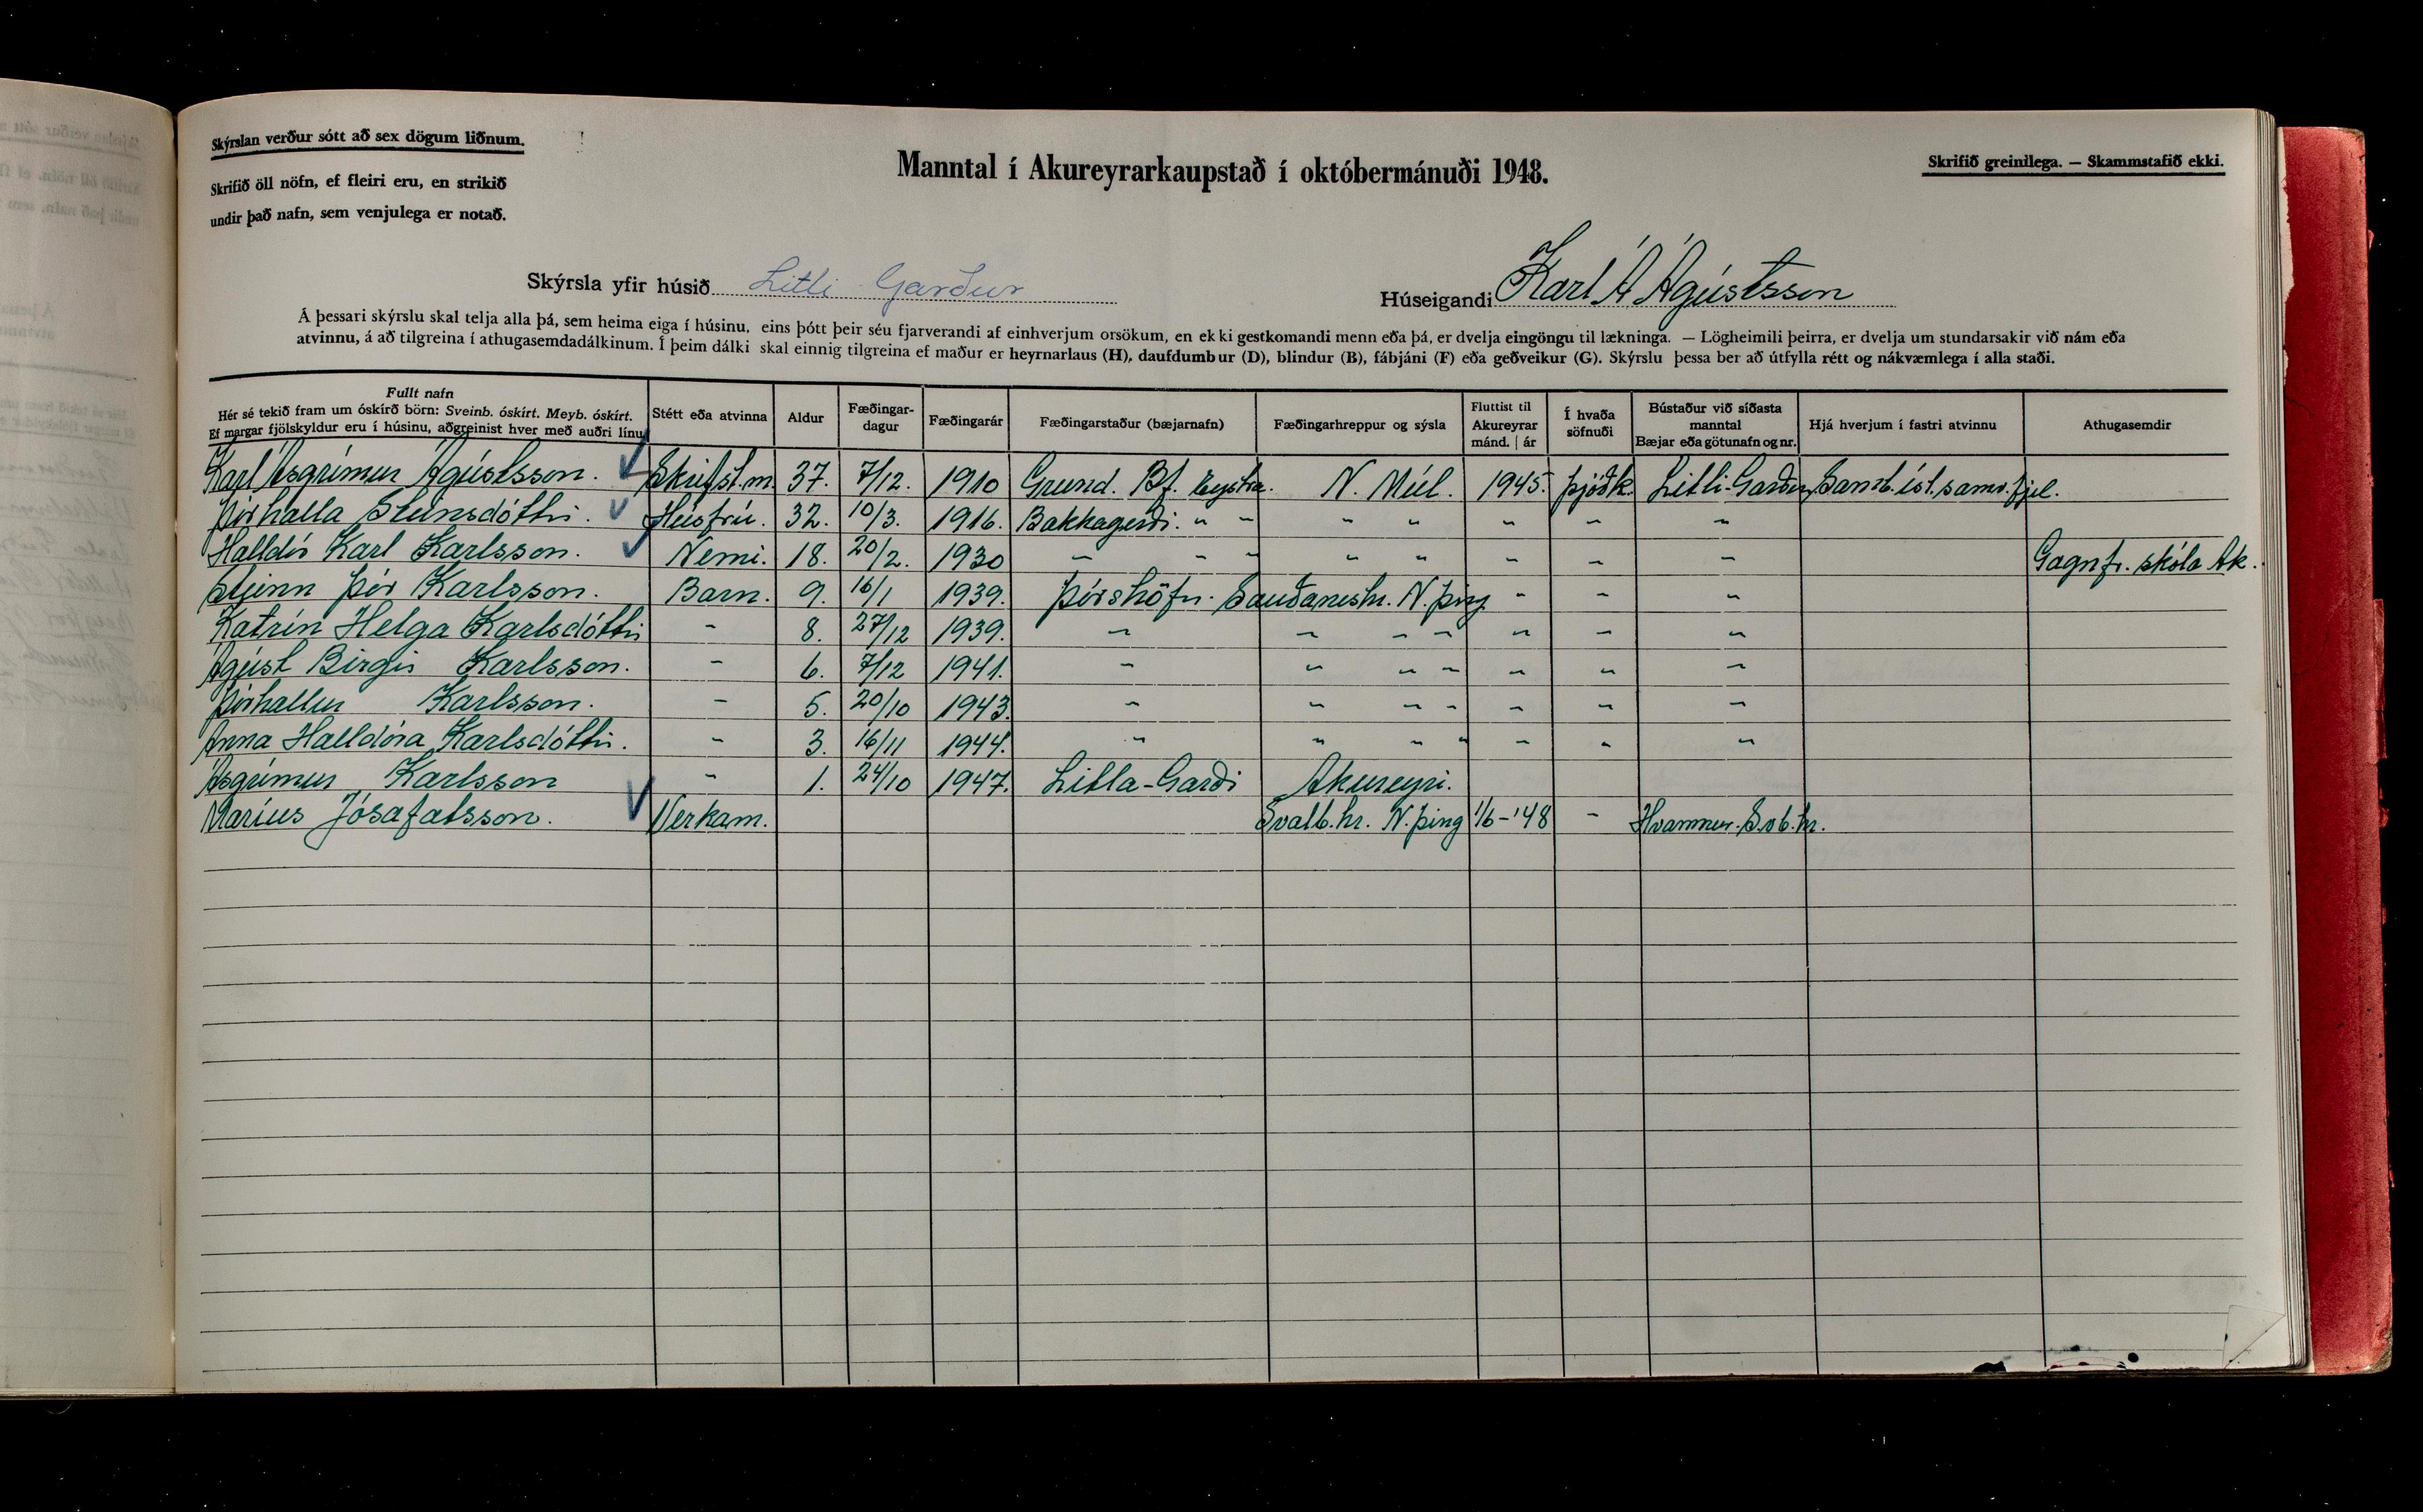 Skýrslan verður sótt að sex dögum liðnum.
Skrifið öll nöfn, ef fleiri eru, en strikið
undir það nafn, sem venjulega er notað.
Manntal í Akureyrarkaupstað í októbermánuði 1948.
Skrifið greinilega. — Skammstafið ekki.
Skýrsla yfir húsið Litli Garður
Húseigandi Karl Á Ágústsson
Á þessari skýrslu skal telja alla þá, sem heima eiga í húsinu, eins þótt þeir séu fjarverandi af einhverjum orsökum, en ekki gestkomandi menn eða þá, er dvelja eingöngu til lækninga. — Lögheimili þeirra, er dvelja um stundarsakir við nám eða
atvinnu, á að tilgreina í athugasemdadálkinum. Í þeim dálki skal einnig tilgreina ef maður er heyrnarlaus (H), daufdumbur (D), blindur (B), fábjáni (F) eða geðveikur (G). Skýrslu þessa ber að útfylla rétt og nákvæmlega í alla staði.
Fullt nafn
Hér sé tekið fram um óskírð börn: Sveinb. óskírt. Meyb. óskírt.
Ef margar fjölskyldur eru í húsinu, aðgreinist hver með auðri línu
Stétt eða atvinna
Aldur
Fæðingar-
dagur
Fæðingarár
Fæðingarstaður (bæjarnafn)
Fæðingarhreppur og sýsla
Fluttist til
Akureyrar
mánd. | ár
Í hvaða
söfnuði
Bústaður við síðasta
manntal
Bæjar eða götunafn og nr.
Hjá hverjum í fastri atvinnu
Athugasemdir
Karl Ásgrímur Ágústsson. Skrifst.m. 37. 7/12. 1910 Grund. Bf. Eystra. N. Múl. 1945. þjóðk. Litli-Garður Samb. ísl. samv.fjel.
Þórhalla Steinsdóttir. Húsfrú. 32. 10/3. 1916. Bakkagerði. " " " " " " "
Halldór Karl Karlsson. Nemi. 18. 20/2. 1930 " " " " " " " " Gagnfr. skóla Ak.
Steinn Þór Karlsson. Barn. 9. 16/1 1939. Þórshöfn. Sauðaneshr. N. Þing " " "
Katrín Helga Karlsdóttir " 8. 27/12 1939. " " " " " " "
Ágúst Birgir Karlsson. " 6. 7/12 1941. " " " " " " "
Þórhallur Karlsson. " 5. 20/10 1943. " " " " " " "
Anna Halldóra Karlsdóttir. " 3. 16/11 1944. " " " " " " "
Ásgrímur Karlsson " 1. 24/10 1947. Litla-Garði Akureyri.
Maríus Jósafatsson. Verkam. Svalb.hr. N. Þing 1/6-'48 " Hvammur. Svb.hr.